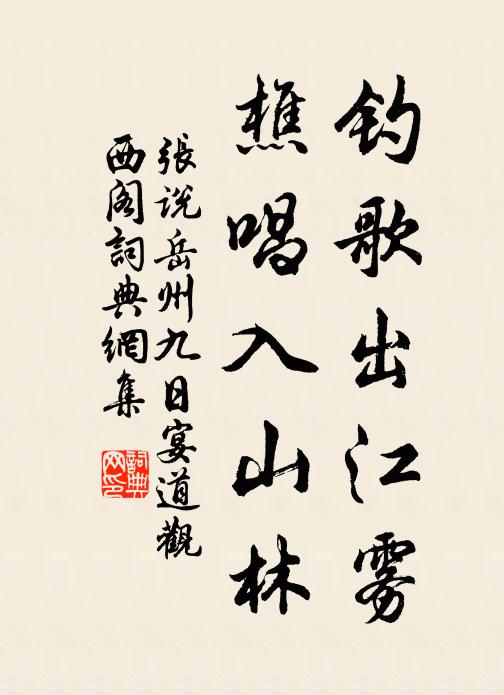 钓歌出江雾
樵唱入山林
張说岳州九日宴道觀
西阁詞典網集
詞典网印